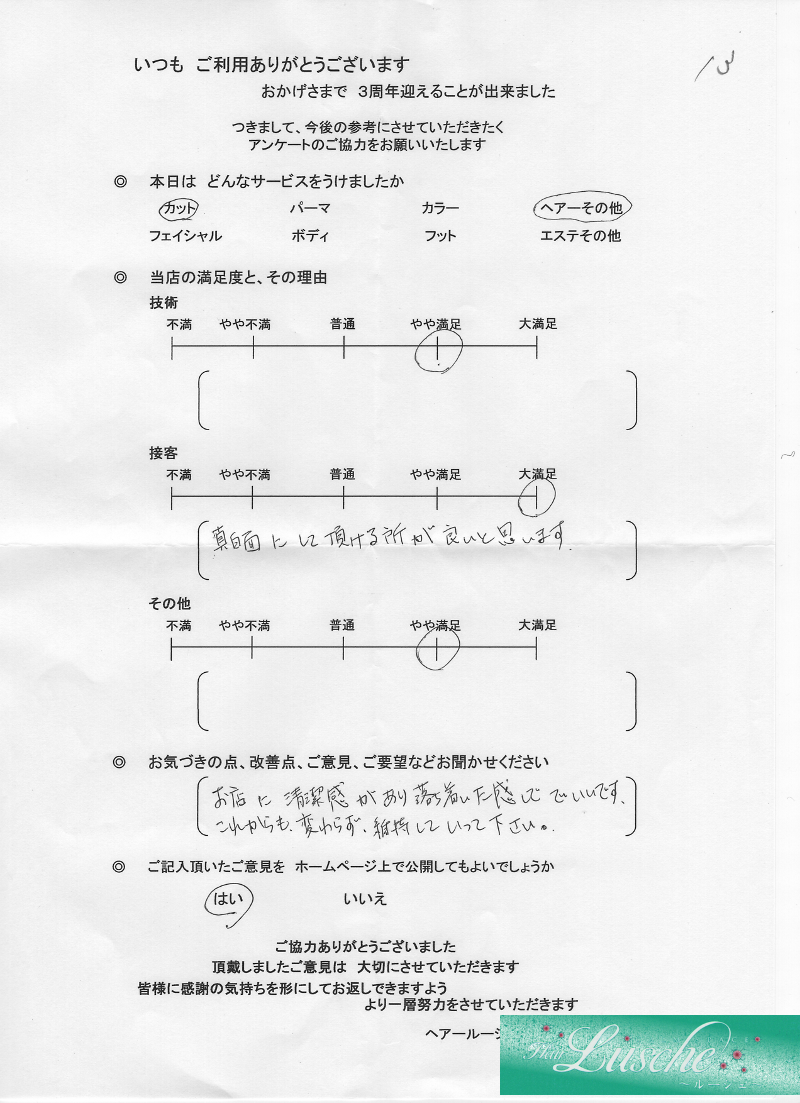 13
いつも ご利用ありがとうございます
おかげさまで 3周年迎えることが出来ました
つきまして、今後の参考にさせていただきたく
アンケートのご協力をお願いいたします
◎ 本日は どんなサービスをうけましたか
カット パーマ カラー ヘアーその他
フェイシャル ボディ フット エステその他
◎ 当店の満足度と、その理由
技術
不満 やや不満 普通 やや満足 大満足
接客
不満 やや不満 普通 やや満足 大満足
真白面にして頂ける所が良いと思います。
その他
不満 やや不満 普通 やや満足 大満足
◎ お気づきの点、改善点、ご意見、ご要望などお聞かせください
お店に清潔感があり落ち着いた感じでいいです、
これからも、変わらず、維持していって下さい。
◎ ご記入頂いたご意見を ホームページ上で公開してもよいでしょうか
はい いいえ
ご協力ありがとうございました
頂戴しましたご意見は 大切にさせていただきます
皆様に感謝の気持ちを形にしてお返しできますよう
より一層努力をさせていただきます
ヘアールージ
Hair Lusche
ヘールージェ